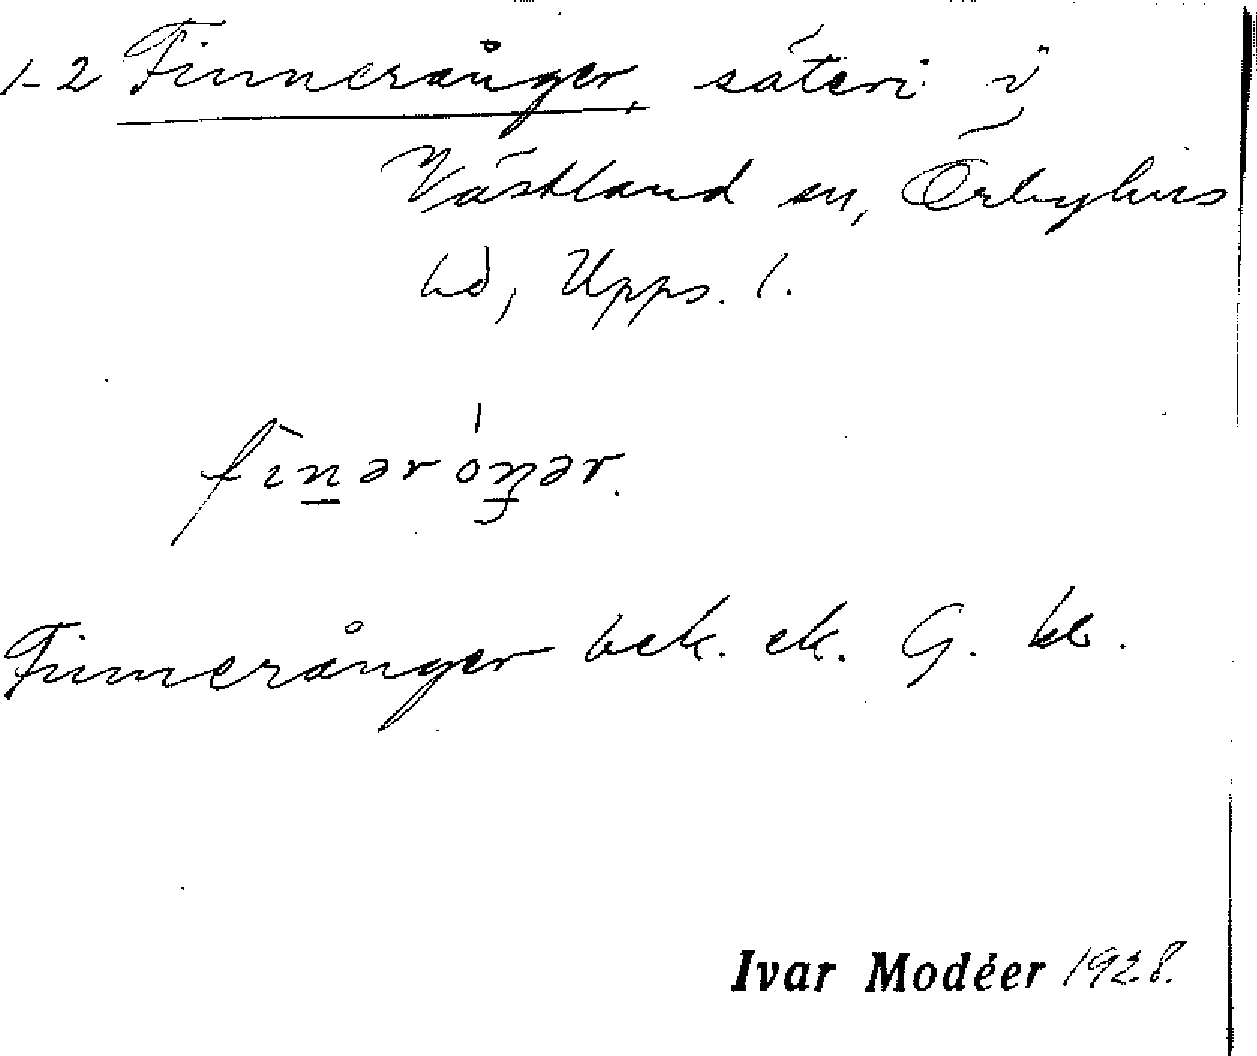 1-2 Finnerånger, säteri i
Västland sn, Örbyhus
hd, Upps. l.
finəróŋər.
Finnerånger bek. ek. G. kb.
Ivar Modéer 1928.